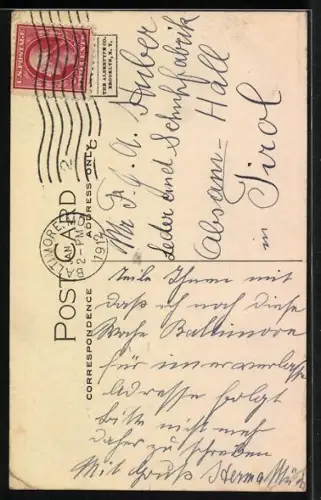 U.S. POSTAGE
THE ALBERTYPE CO.
BROOKLYN, N.Y.
BALTIMORE, MD.
JAN
2-PM
1914
2
POST CARD
CORRESPONDENCE
ADDRESS ONLY
Mr F. J. A. Huber
Leder und Schuhfabrik
Absam-Hall
in Tirol
Teile Ihnen mit
daß ich noch diese
Woche Baltimore
für immer verlasse
Adresse folgt
bitte nicht mehr
daher zu schreiben
Mit Gruß Herma